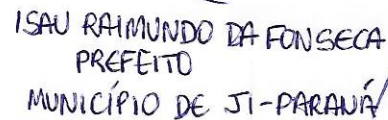 ISAU RAIMUNDO DA FONSECA
PREFEITO
MUNICÍPIO DE JI-PARANÁ